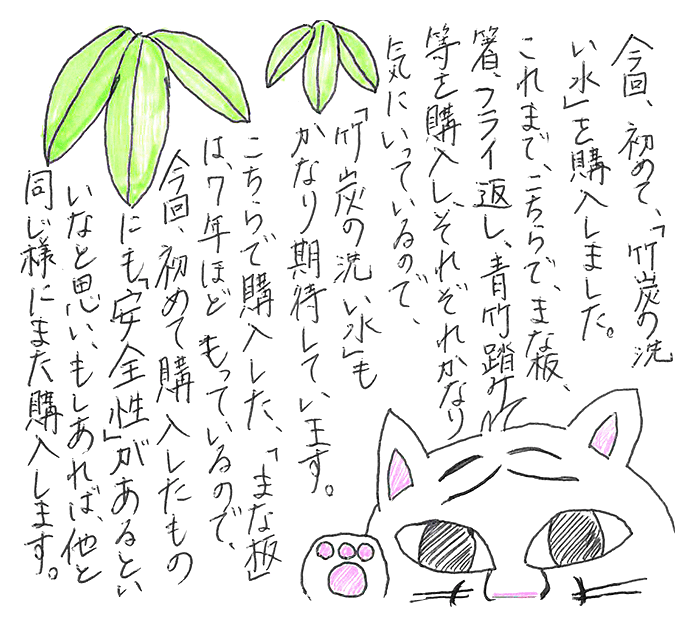 今回、初めて、「竹炭の洗
い水」を購入しました。
これまで、こちらで、まな板、
箸、フライ返し、青竹踏み
等を購入し、それぞれかなり
気にいっているので、
「竹炭の洗い水」も
かなり期待しています。
こちらで購入した、「まな板」
は、7年ほどもっているので、
今回、初めて購入したもの
にも「安全性」があるとい
いなと思い、もしあれば、他と
同じ様にまた購入します。